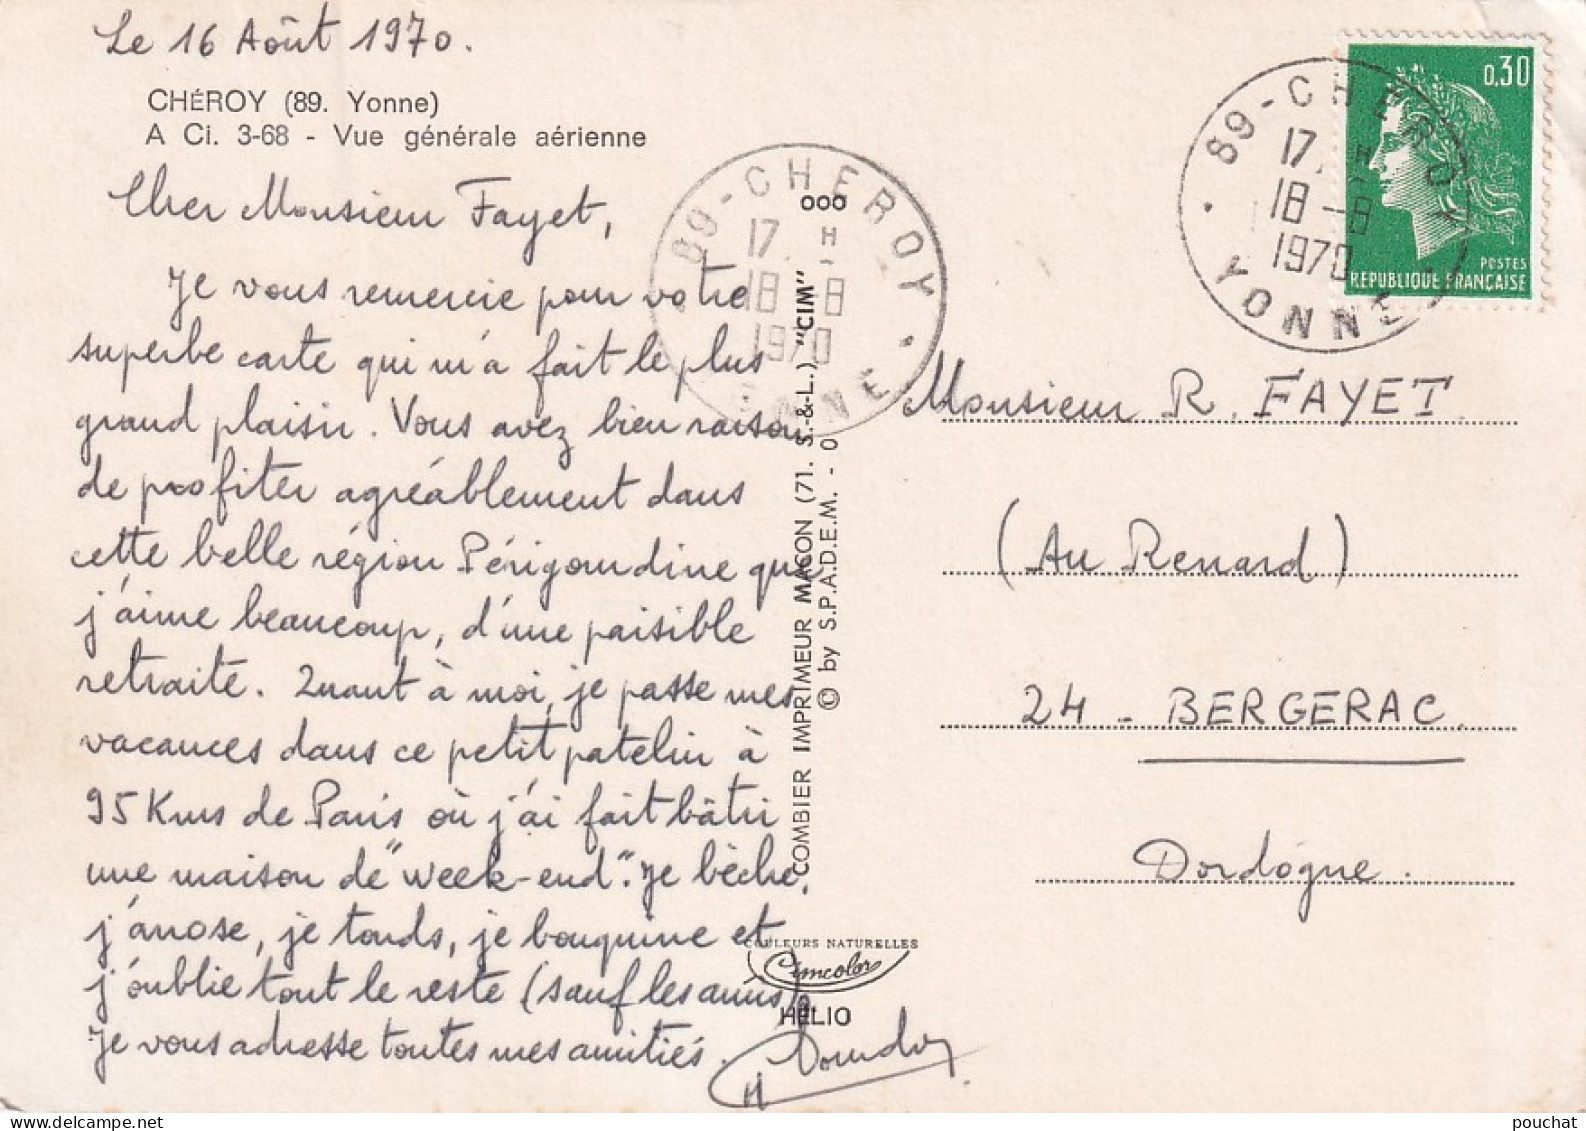 Le 16 Août 1970.
CHÉROY (89. Yonne)
A Ci. 3-68 - Vue générale aérienne
Cher Monsieur Fayet,
Je vous remercie pour votre
superbe carte qui m'a fait le plus
grand plaisir. Vous avez bien raison
de profiter agréablement dans
cette belle région Périgourdine que
j'aime beaucoup, d'une paisible
retraite. Quant à moi, je passe mes
vacances dans ce petit patelin à
95 Kms de Paris où j'ai fait bâtir
une maison de "week-end". Je bêche,
j'arrose, je tonds, je bouquine et
j'oublie tout le reste (sauf les amis)
Je vous adresse toutes mes amitiés.
89-CHEROY
17 H
18-8
1970
YONNE
000
COMBIER IMPRIMEUR MACON (71. S.-&-L.) "CIM"
© by S.P.A.D.E.M. - 0
COULEURS NATURELLES
Cimcolor
HÉLIO
0,30
POSTES
REPUBLIQUE FRANÇAISE
89-CHEROY
17 H
18-8
1970
YONNE
Monsieur R. FAYET
(Au Renard)
24 - BERGERAC
Dordogne.
pouchat